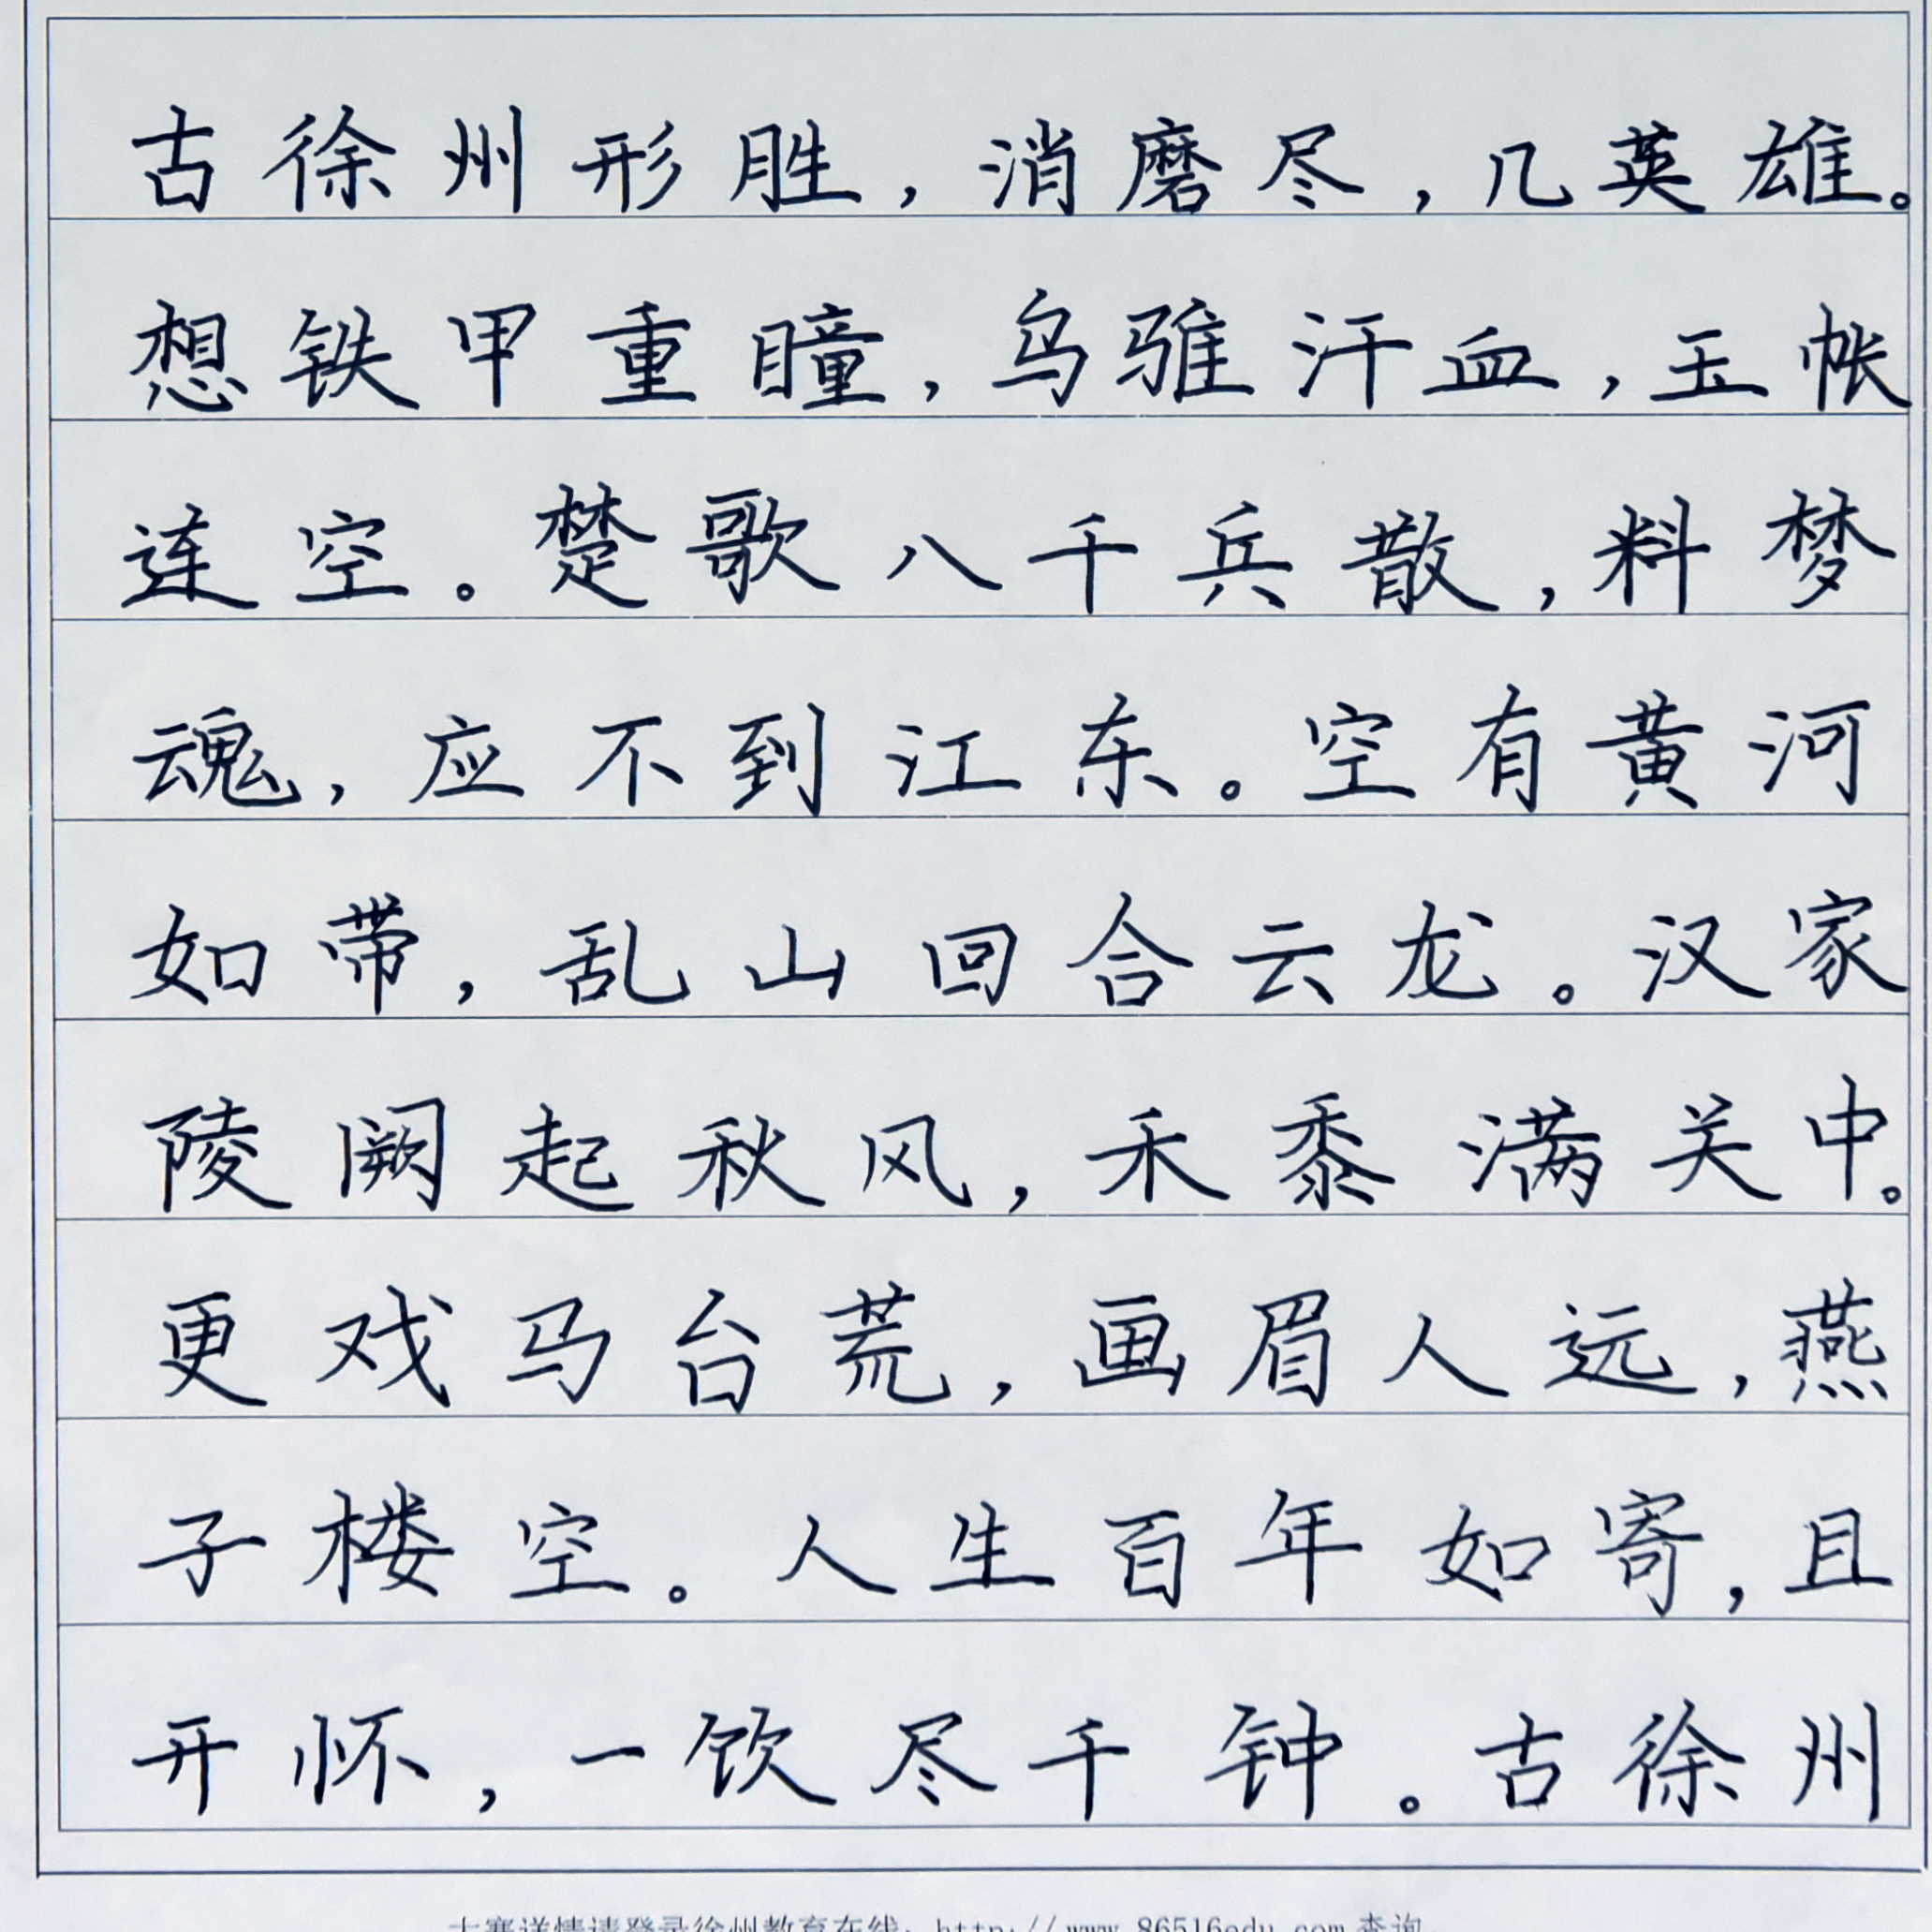 古徐州形胜，消磨尽，几英雄。
想铁甲重瞳，乌骓汗血，玉帐
连空。楚歌八千兵散，料梦
魂，应不到江东。空有黄河
如带，乱山回合云龙。汉家
陵阙起秋风，禾黍满关中。
更戏马台荒，画眉人远，燕
子楼空。人生百年如寄，且
开怀，一饮尽千钟。古徐州
大赛详情请登录徐州教育在线：http://www.86516edu.com查询。